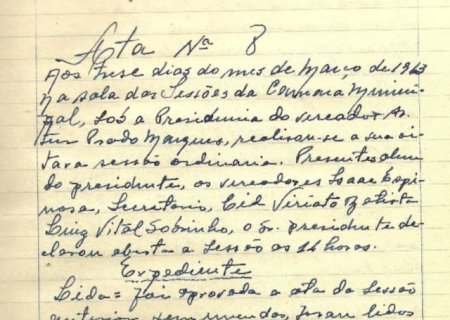 Acta Nª 8
Aos trese dias do mes de Março de 1963
na sala das Sessões da Camara Munici-
pal, sob a Presidencia do vereador Ar-
tur Prado Marques, realisou-se a sua oi-
tava sessão ordinaria. Presentes alem
do presidente, os vereadores Isaac Espi-
nosa, Secretario, Cid Viriato Batista
Luiz Vital Sobrinho, o Sr. presidente de-
clarou aberta a sessão as 14 horas.
Expediente
Lida = foi aprovada a ata da sessão
anterior sem emendas, foram lidos